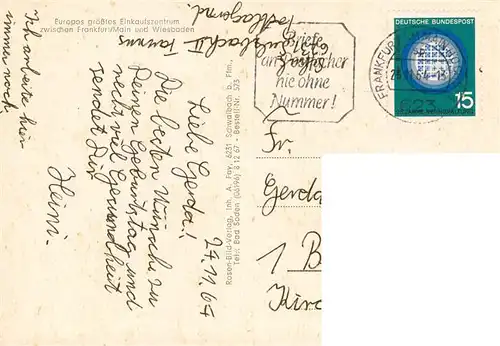 Europas größtes Einkaufszentrum
zwischen Frankfurt/Main und Wiesbaden
Ich arbeite hier
immer noch
Liebe Gerda!
Die besten Wünsche zu
Deinem Geburtstag und
recht viel Gesundheit
sendet Dir
Heini.
24.11.64
Rosen-Bild-Verlag, Inh. A. Fay, 6231 Schwalbach b. Ffm.,
Telefr. Bad Soden (06196) 81267 - Bestell-Nr. 573
Sulzbach Taunus
Postlagernd
Briefe
an
nie ohne
Nummer!
FRANKFURT
623
DEUTSCHE BUNDESPOST
15
Fr.
Gerda
1 B
Kirc